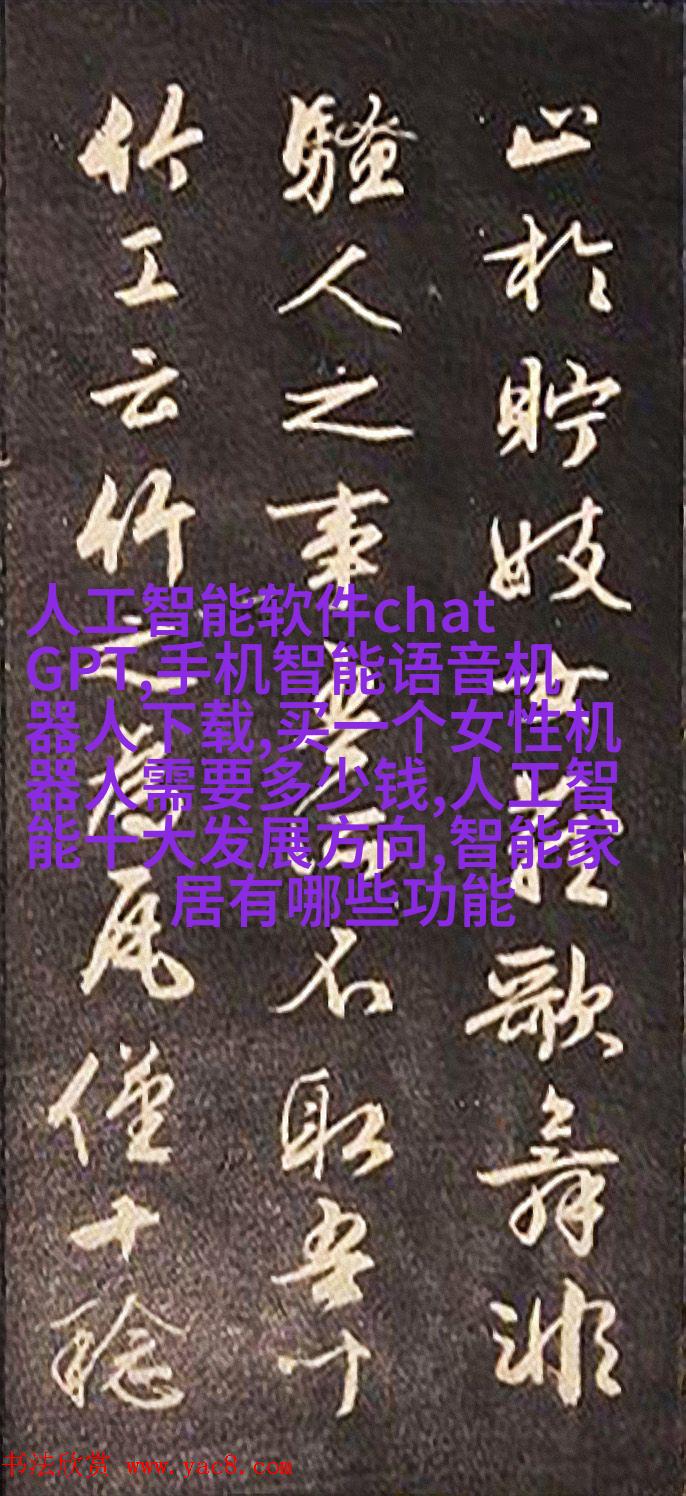 止於貯妓女藏歌舞非
騷人之事吾所不取吾聞
竹工云竹之為瓦僅十稔
人工智能软件chat
GPT,手机智能语音机
器人下载,买一个女性机
器人需要多少钱,人工智
能十大发展方向,智能家
居有哪些功能
书法欣赏 www.yac8.com